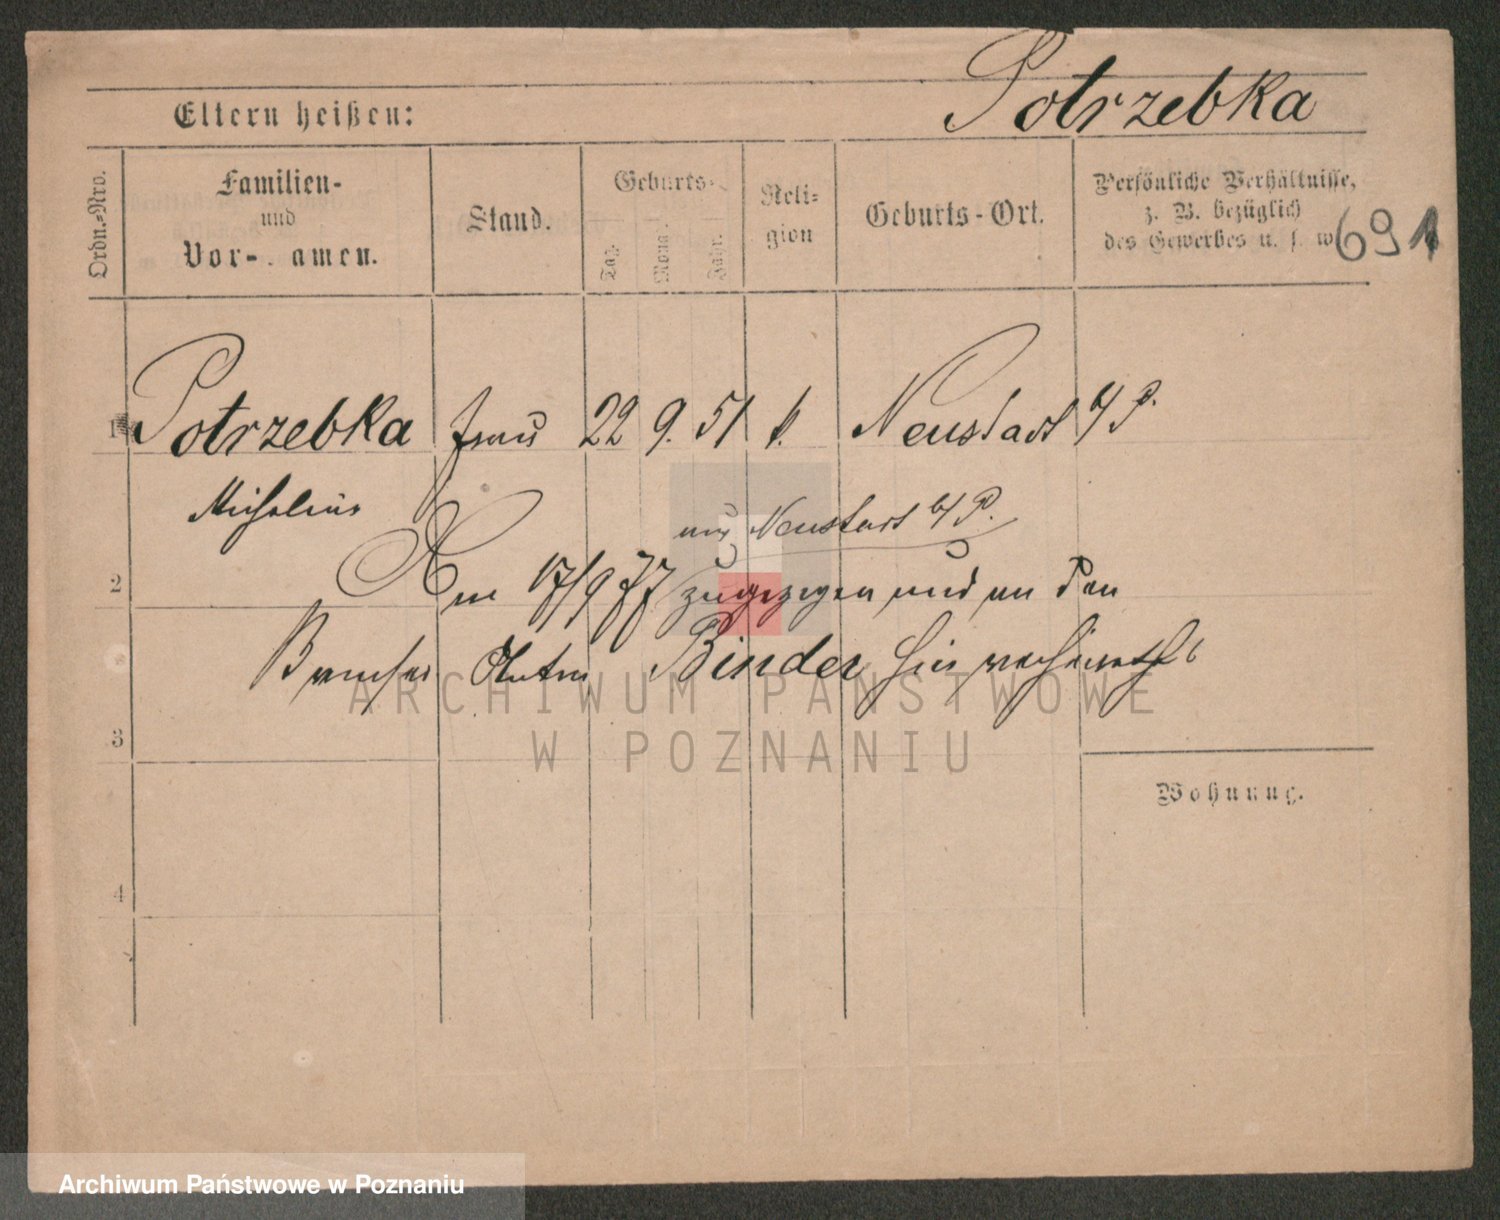 Potrzebka
Eltern heißen:
Ordn.-Nro.
Familien-
und
Vor- amen.
Stand.
Geburts-
Tag.
Mona
Jahr.
Reli-
gion
Geburts-Ort.
Persönliche Verhältnisse,
z. B. bezüglich
des Gewerbes u. s. w
691
1 Potrzebka Frau 22 9. 51 k. Neustadt b/ P.
aus Neustadt b/ P.
2 Am 17/9 77 zugezogen und an den
Anton Binder hier verheirathet
3
Wohnung.
4
ARCHIWUM PAŃSTWOWE
W POZNANIU
Archiwum Państwowe w Poznaniu